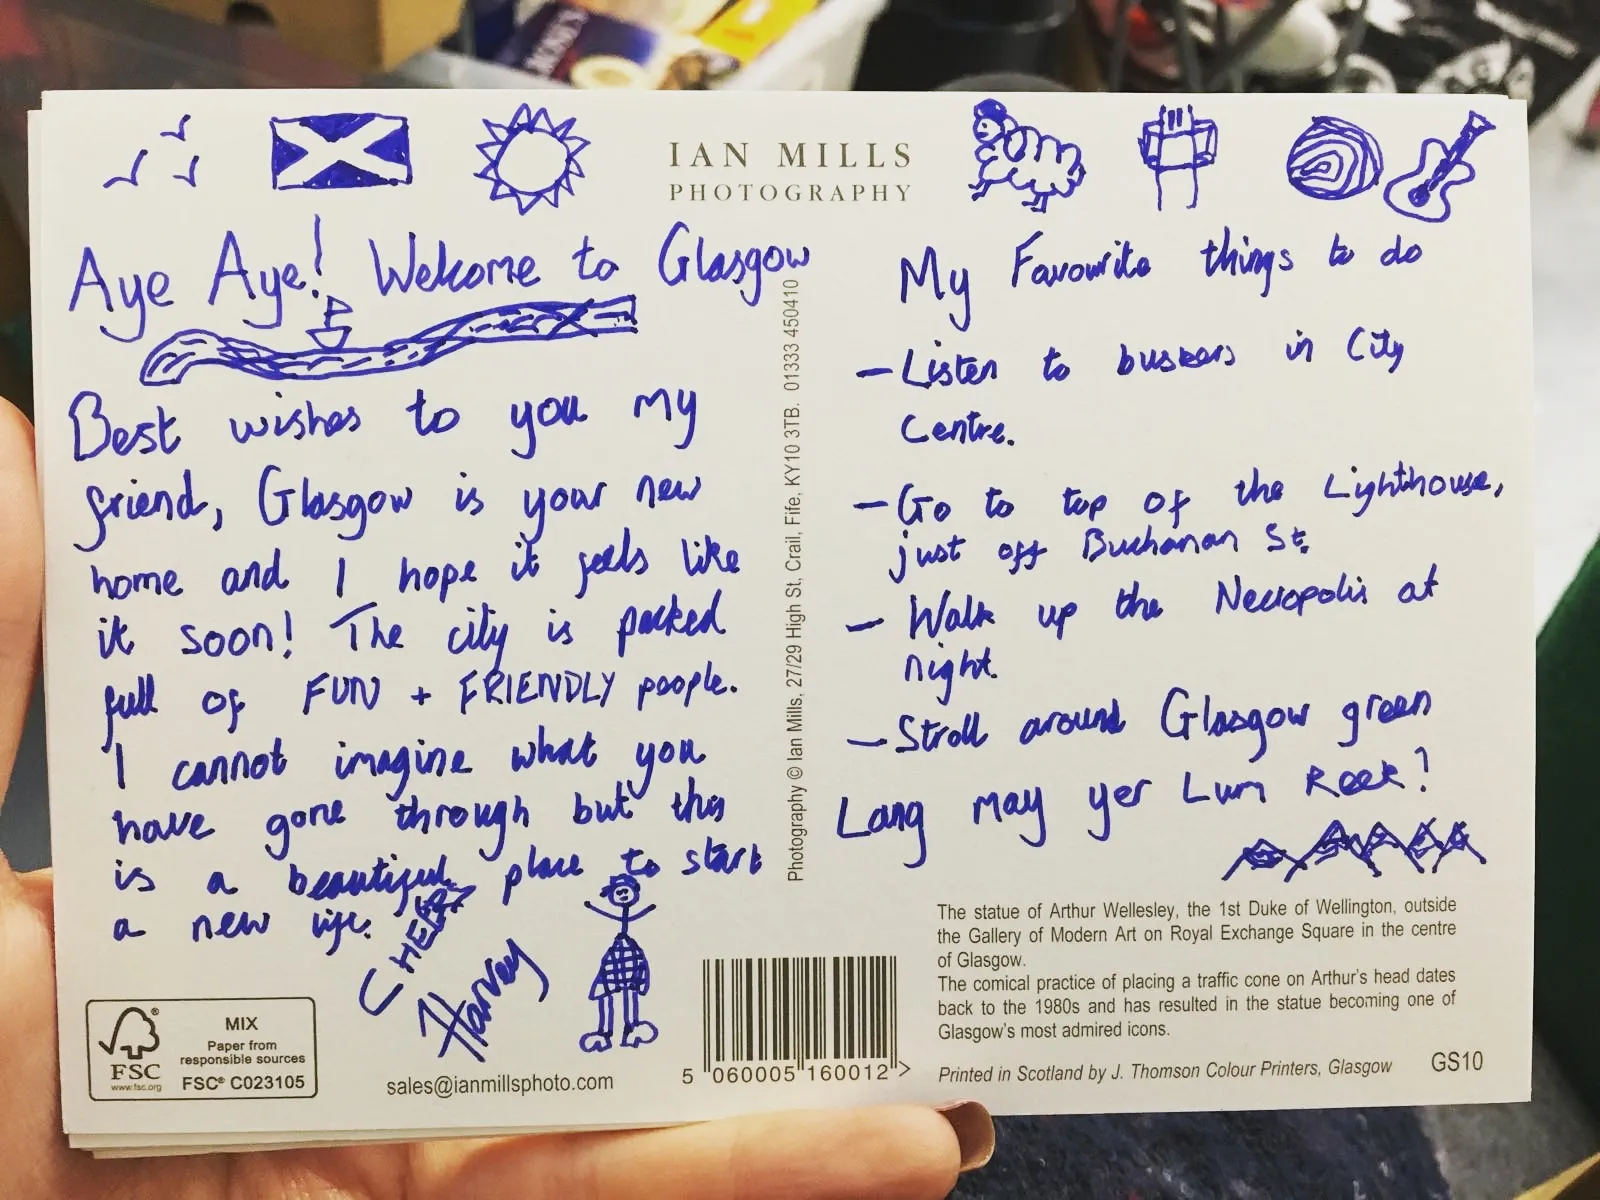 IAN MILLS
PHOTOGRAPHY
Aye Aye! Welcome to Glasgow
Best wishes to you my
friend, Glasgow is your new
home and I hope it feels like
it soon! The city is packed
full of FUN + FRIENDLY people.
I cannot imagine what you
have gone through but this
is a beautiful place to start
a new life.
Harvey
FSC
www.fsc.org
MIX
Paper from
responsible sources
FSC® C023105
sales@ianmillsphoto.com
Photography © Ian Mills, 27/29 High St, Crail, Fife, KY10 3TB. 01333 450410
My Favourite things to do
- Listen to buskers in City
Centre.
- Go to top of the Lighthouse,
just off Buchanan St.
- Walk up the Necropolis at
night.
- Stroll around Glasgow green
Lang may yer Lum Reek!
The statue of Arthur Wellesley, the 1st Duke of Wellington, outside
the Gallery of Modern Art on Royal Exchange Square in the centre
of Glasgow.
The comical practice of placing a traffic cone on Arthur's head dates
back to the 1980s and has resulted in the statue becoming one of
Glasgow's most admired icons.
5 060005 160012 >
Printed in Scotland by J. Thomson Colour Printers, Glasgow
GS10